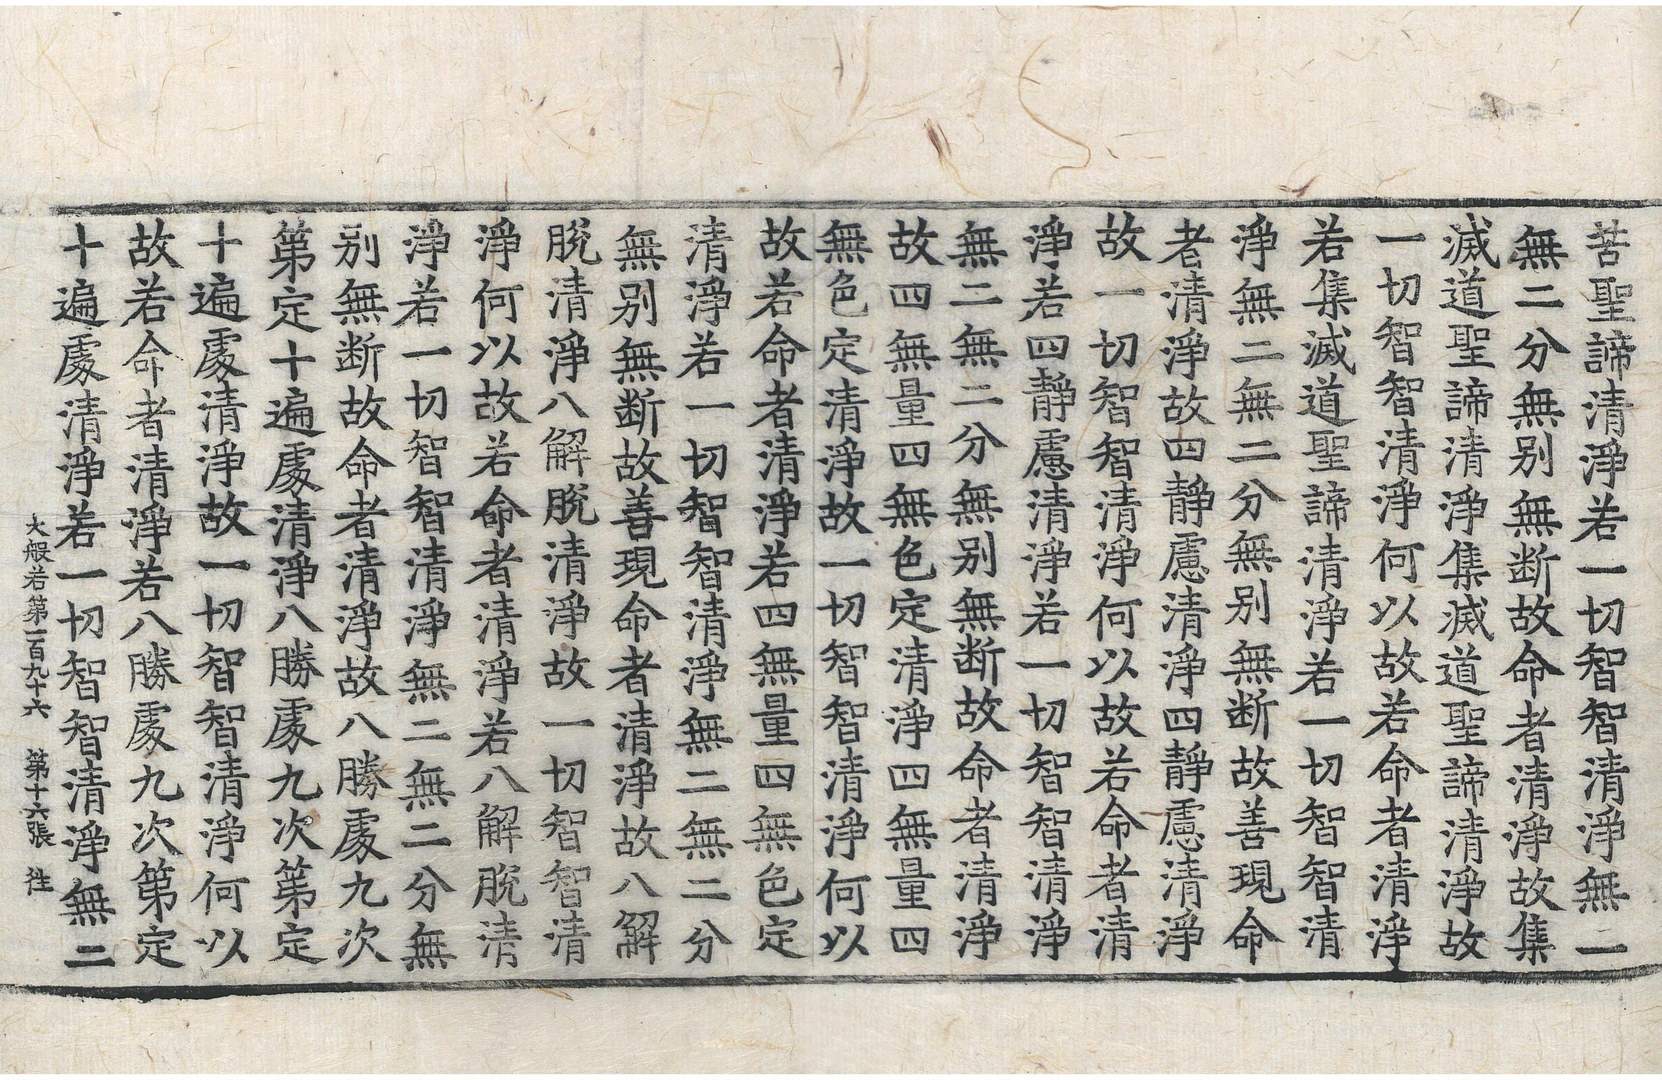 苦聖諦清淨若一切智智清淨無二
無二分無别無断故命者清淨故集
滅道聖諦清淨集滅道聖諦清淨故
一切智智清淨何以故若命者清淨
若集滅道聖諦清淨若一切智智清
淨無二無二分無别無断故善現命
者清淨故四靜慮清淨四靜慮清淨
故一切智智清淨何以故若命者清
淨若四靜慮清淨若一切智智清淨
無二無二分無别無断故命者清淨
故四無量四無色定清淨四無量四
無色定清淨故一切智智清淨何以
故若命者清淨若四無量四無色定
清淨若一切智智清淨無二無二分
無别無断故善現命者清淨故八解
脫清淨八解脫清淨故一切智智清
淨何以故若命者清淨若八解脫清
淨若一切智智清淨無二無二分無
别無断故命者清淨故八勝處九次
第定十遍處清淨八勝處九次第定
十遍處清淨故一切智智清淨何以
故若命者清淨若八勝處九次第定
十遍處清淨若一切智智清淨無二
大般若第一百九十六 第十六張 往